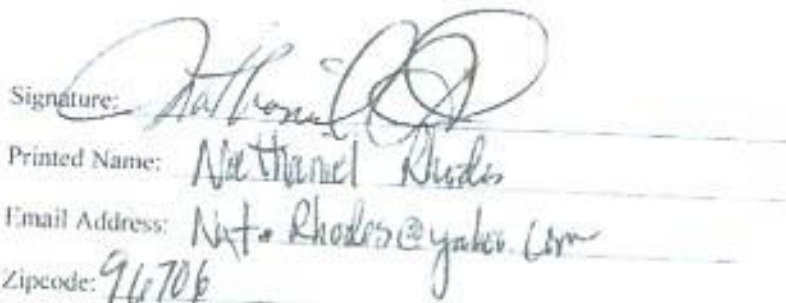 Signature: Nathaniel
Printed Name: Nathaniel Rhodes
Email Address: Nate Rhodes@yahoo.com
Zipcode: 96706